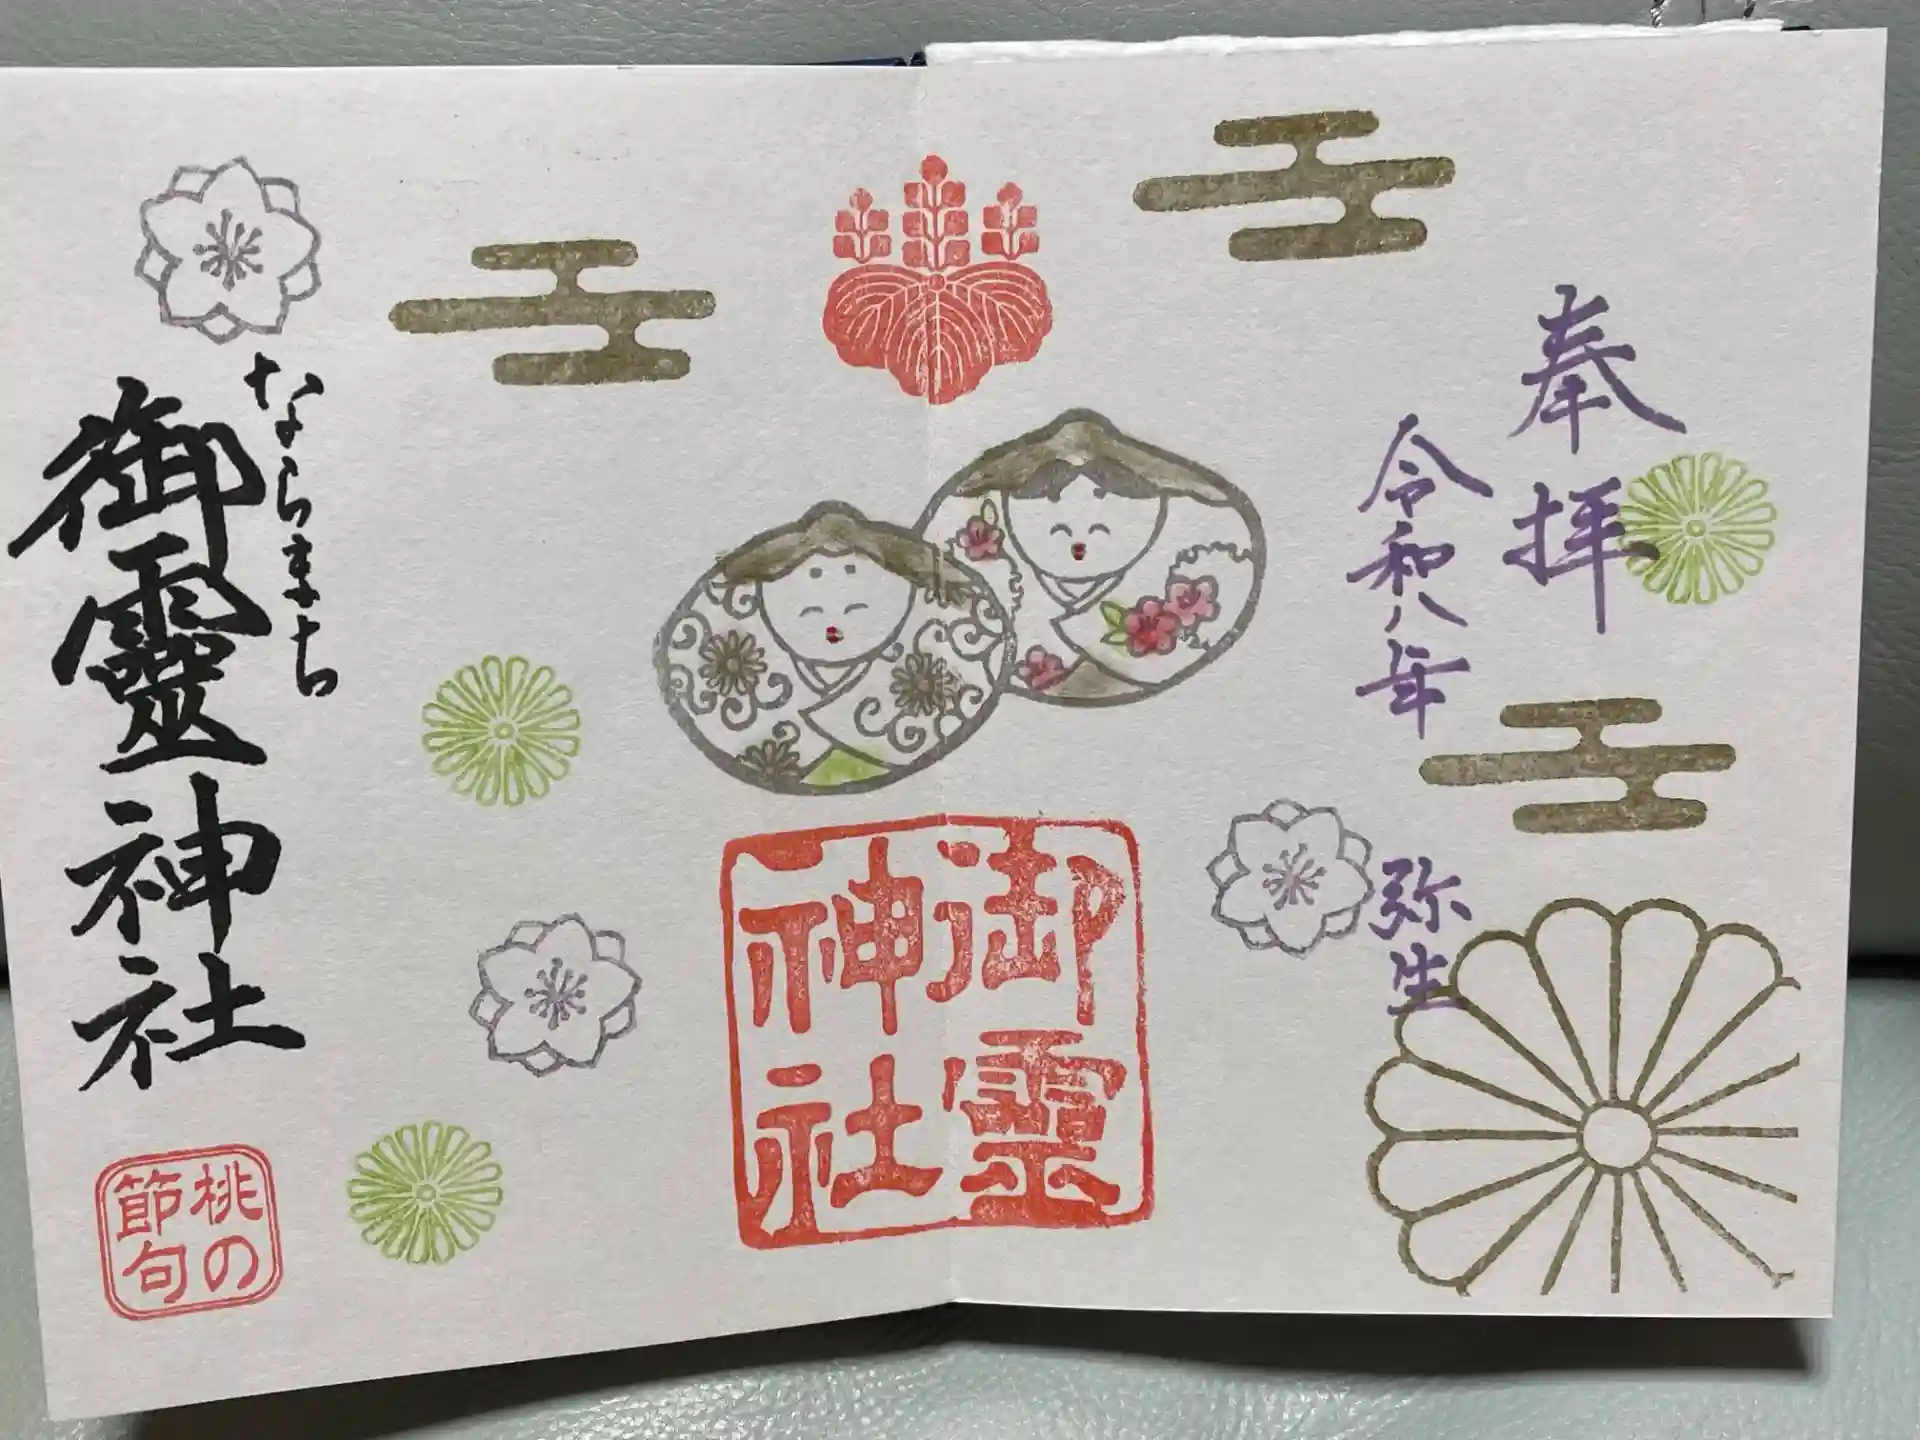 奉拝
令和八年
弥生
御靈
神社
ならまち
御靈神社
桃の
節句